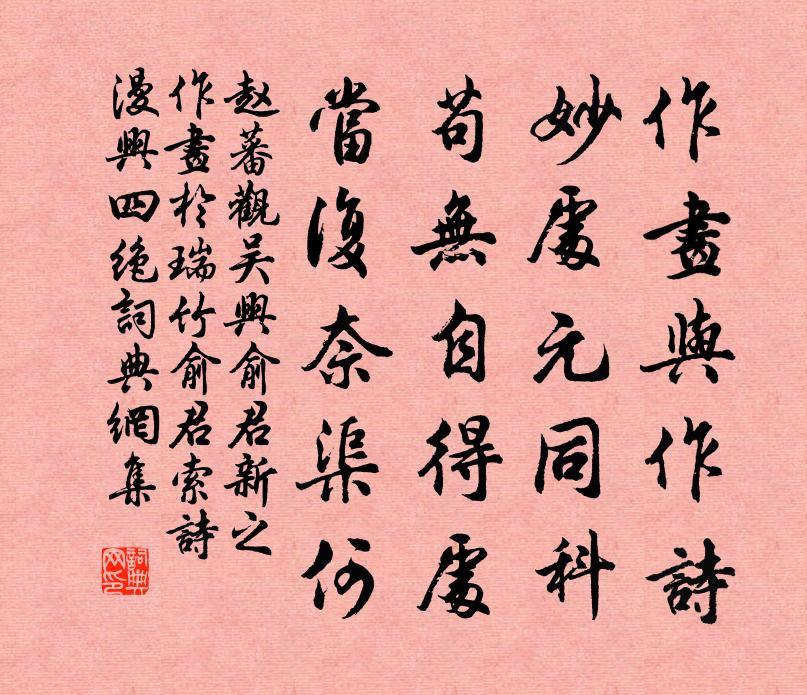 作畫與作詩
妙處元同科
苟無自得處
當復奈渠何
赵蕃觀吴興俞君新之
作畫於瑞竹俞君索詩
漫興四绝詞典網集
詞典网印